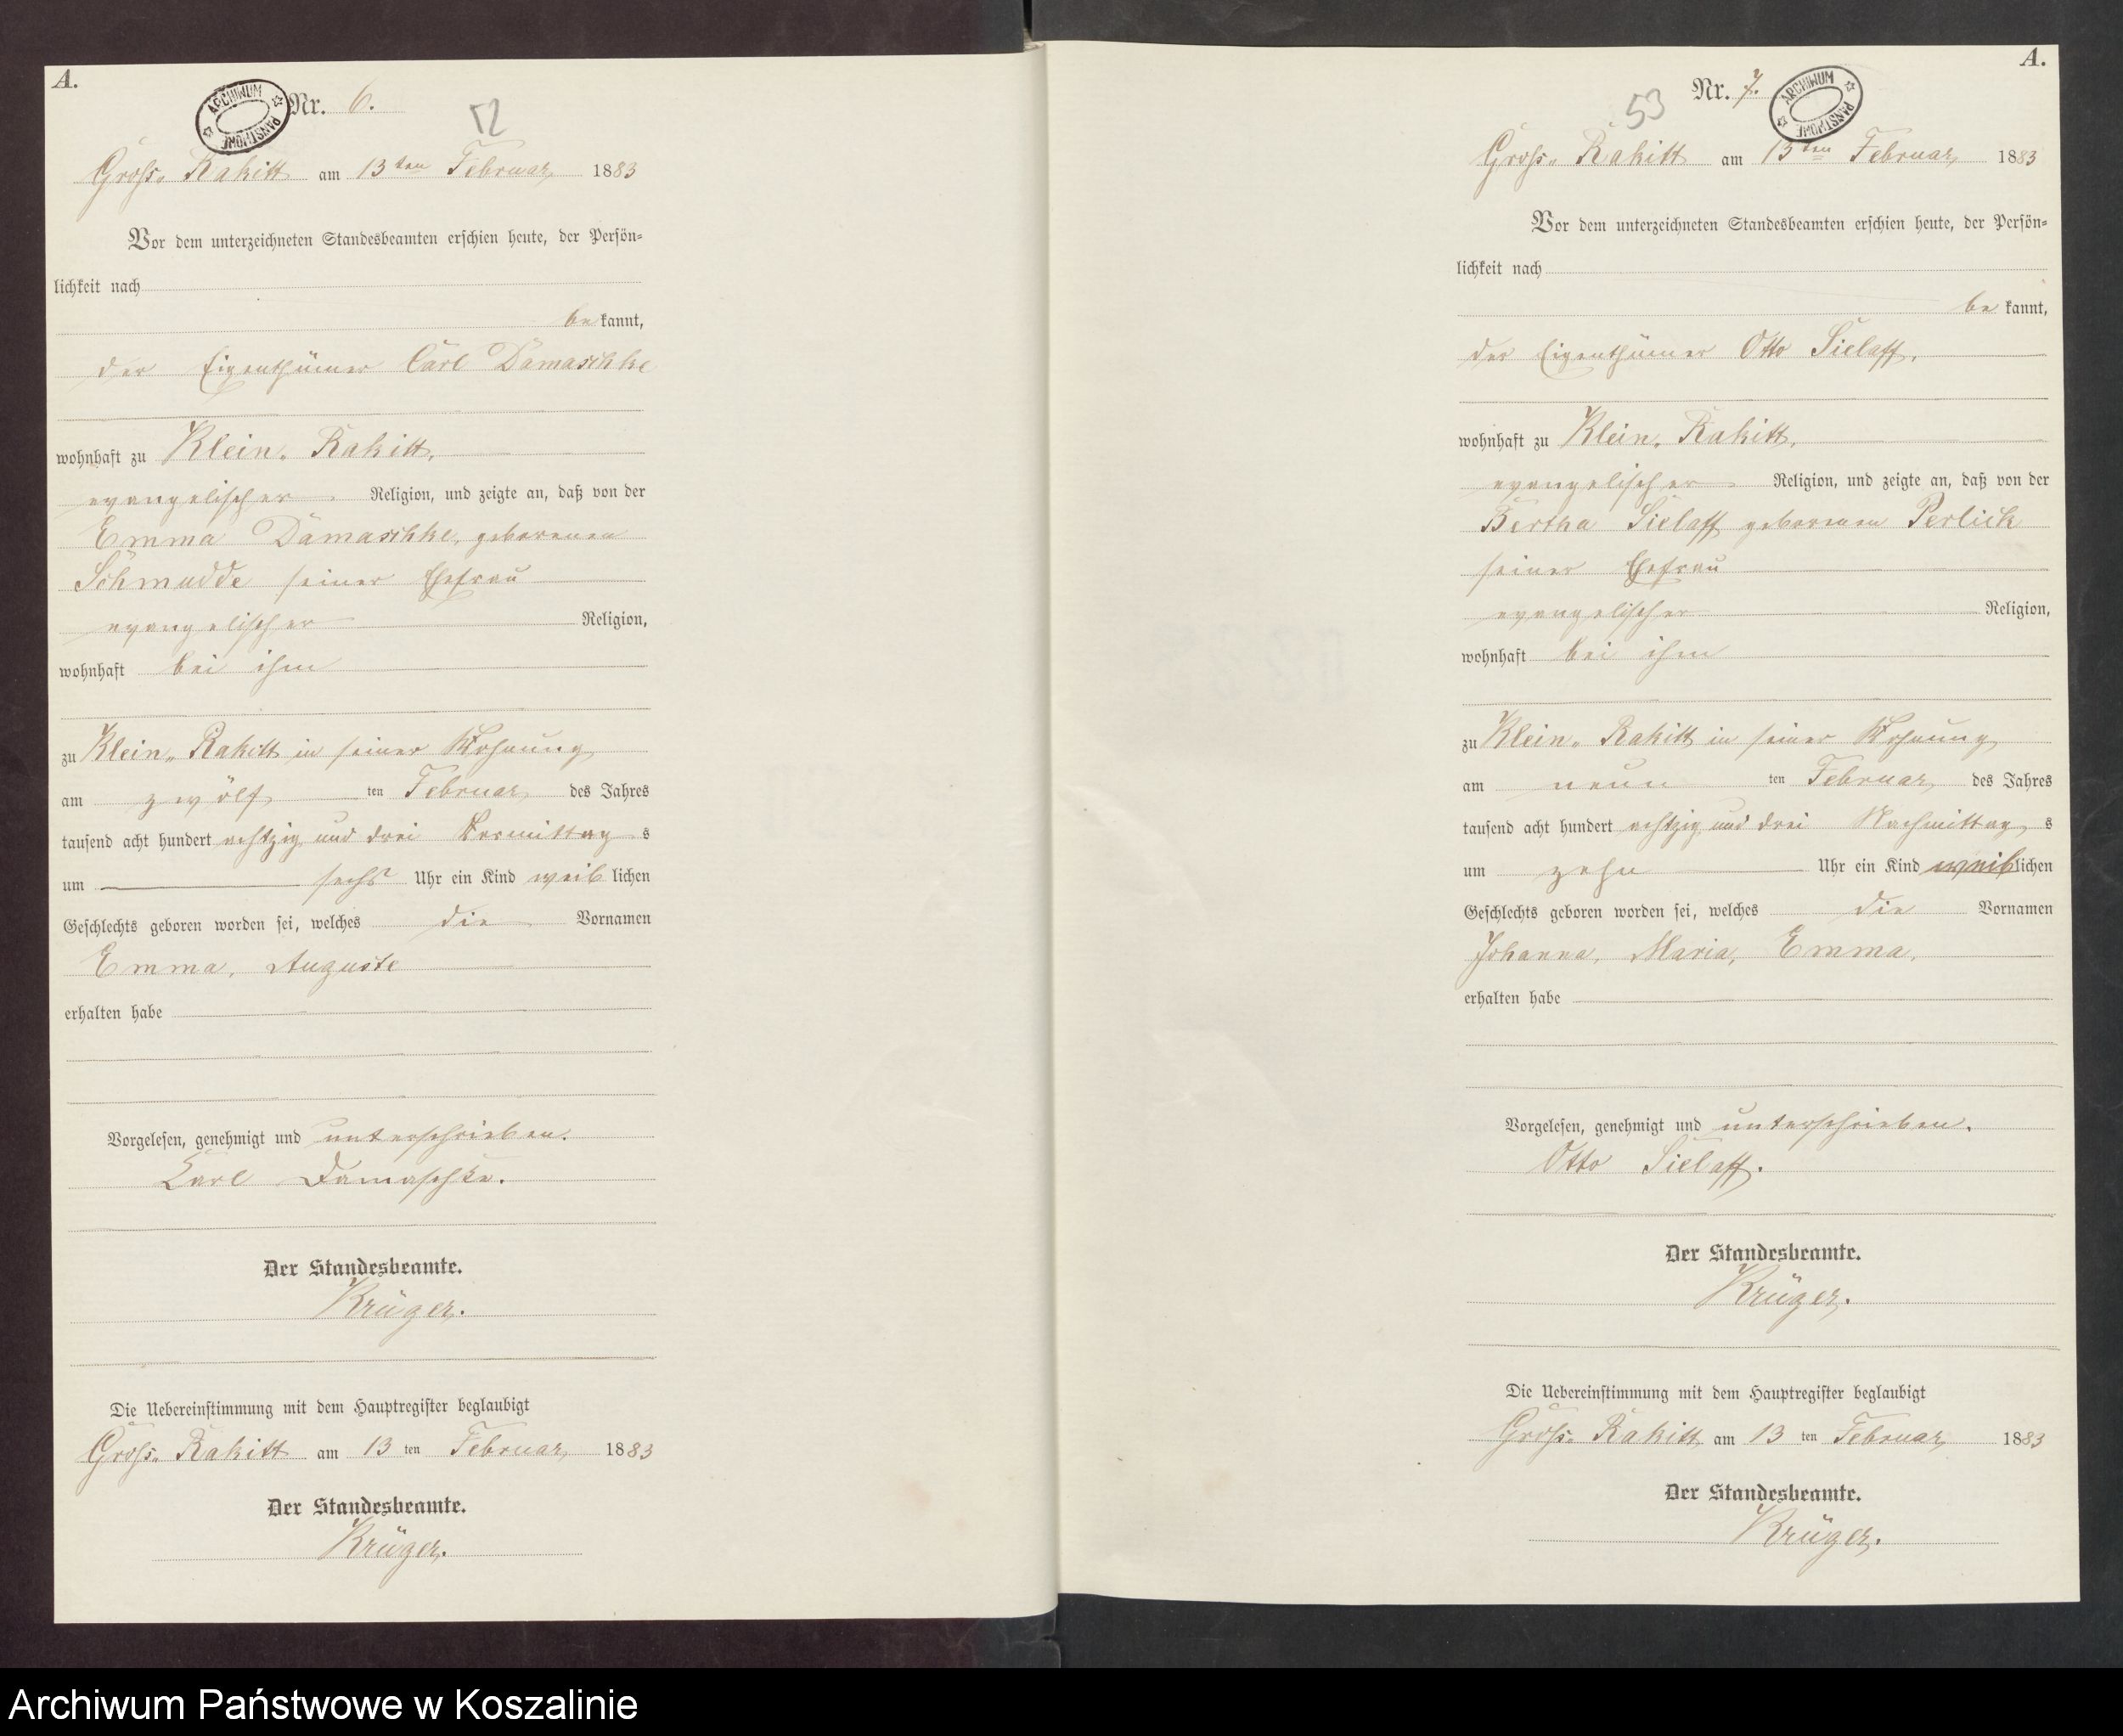 A.
ARCHIWUM PAŃSTWOWE
Nr. 6.
52
Gross. Rakitt am 13ten Februar 1883
Vor dem unterzeichneten Standesbeamten erschien heute, der Persön-
lichkeit nach
be kannt,
der Eigenthümer Carl Damaschke
wohnhaft zu Klein. Rakitt,
evangelischer Religion, und zeigte an, daß von der
Emma Damaschke, geborenen
Schmudde seiner Ehefrau
evangelischer Religion,
wohnhaft bei ihm
zu Klein. Rakitt in seiner Wohnung
am zwölf ten Februar des Jahres
tausend acht hundert achtzig und drei Vormittag s
um sechs Uhr ein Kind weib lichen
Geschlechts geboren worden sei, welches die Vornamen
Emma, Auguste
erhalten habe
Vorgelesen, genehmigt und unterschrieben.
Karl Damaschke.
Der Standesbeamte.
Krüger.
Die Uebereinstimmung mit dem Hauptregister beglaubigt
Gross. Rakitt am 13 ten Februar 1883
Der Standesbeamte.
Krüger.
A.
Nr. 7.
ARCHIWUM PAŃSTWOWE
53
Gross. Rakitt am 13ten Februar 1883
Vor dem unterzeichneten Standesbeamten erschien heute, der Persön-
lichkeit nach
be kannt,
der Eigenthümer Otto Sielaff,
wohnhaft zu Klein. Rakitt,
evangelischer Religion, und zeigte an, daß von der
Bertha Sielaff geborenen Perlick
seiner Ehefrau
evangelischer Religion,
wohnhaft bei ihm
zu Klein. Rakitt in seiner Wohnung
am neun ten Februar des Jahres
tausend acht hundert achtzig und drei Nachmittag s
um zehn Uhr ein Kind weib lichen
Geschlechts geboren worden sei, welches die Vornamen
Johanna, Maria, Emma,
erhalten habe
Vorgelesen, genehmigt und unterschrieben.
Otto Sielaff.
Der Standesbeamte.
Krüger.
Die Uebereinstimmung mit dem Hauptregister beglaubigt
Gross. Rakitt am 13 ten Februar 1883
Der Standesbeamte.
Krüger.
Archiwum Państwowe w Koszalinie